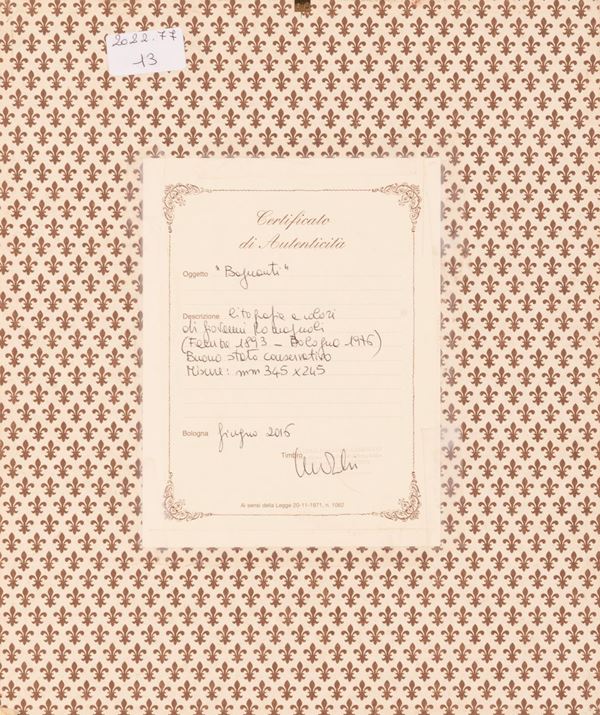 2022.77
13
Certificato
di Autenticità
Oggetto "Bagnanti"
Descrizione litografia a colori
di Giovanni Romagnoli
(Faenza 1893 - Bologna 1976)
Buono stato conservativo
Misure: mm 345 x 245
Bologna giugno 2016
Timbro
Ai sensi della Legge 20-11-1971, n. 1062